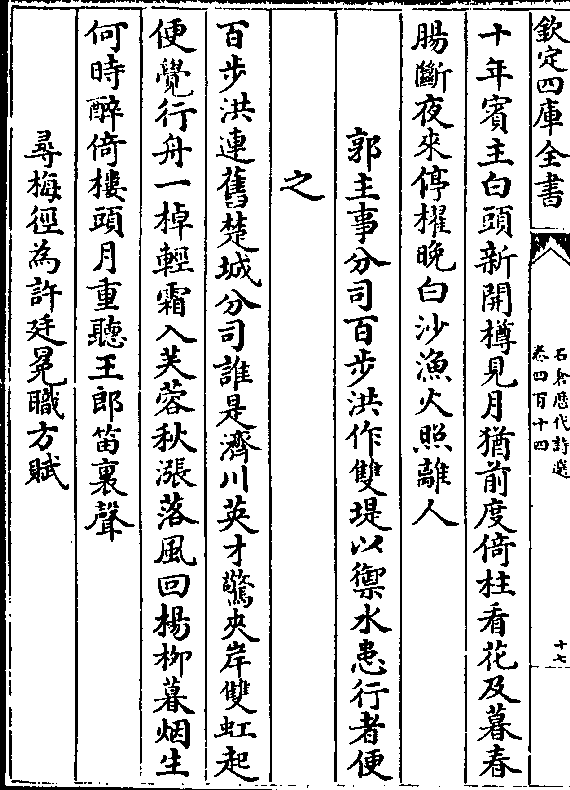 欽定四庫全書
石倉歴代詩選
卷四百十四
十七
十年賓主白頭新開樽見月猶前度倚柱看花及暮春
腸斷夜來停櫂晚白沙漁火照離人
郭主事分司百步洪作雙堤以禦水患行者便
之
百步洪連舊楚城分司誰是濟川英才驚夾岸雙虹起
便覺行舟一棹輕霜入芙蓉秋漲落風回楊柳暮烟生
何時醉倚樓頭月重聽王郎笛裏聲
尋梅徑為許廷冕職方賦